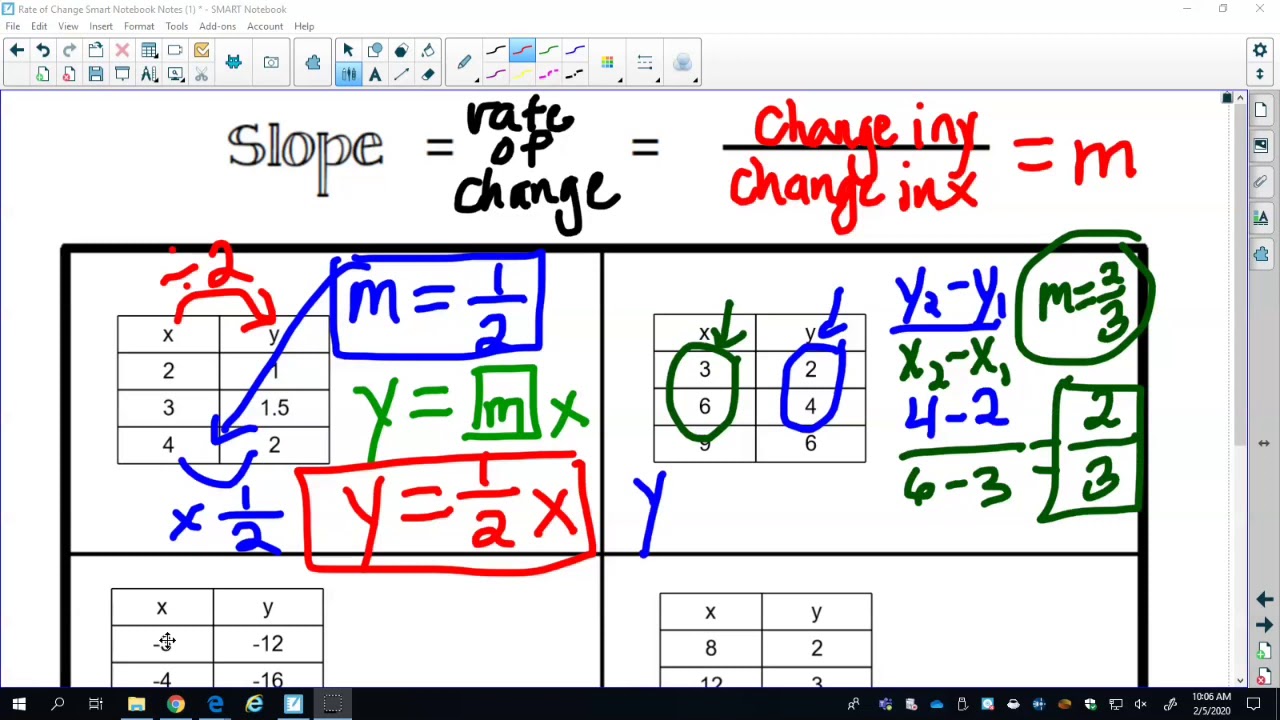 Rate of Change Smart Notebook Notes (1) * - SMART Notebook
File Edit View Insert Format Tools Add-ons Account Help
Slope = rate of change = change in y / change in x = m
÷2
x y
2 1
3 1.5
4 2
x 1/2
m = 1/2
y = m x
y = 1/2 x
x y
3 2
6 4
9 6
y
y₂ - y₁
x₂ - x₁
4 - 2
6 - 3
= 2/3
m = 2/3
x y
-12
-4 -16
x y
8 2
12 3
10:06 AM
2/5/2020